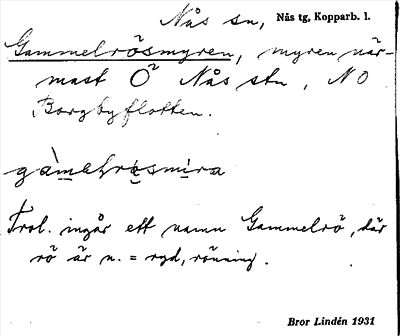 Nås sn, Nås tg, Kopparb. l.
Gammelrösmyren, myren när-
mast Ö Nås stn, NO
Borgbyflotten.
Trol. ingår ett namn Gammelrö, där
rö är n. = ryd, röning.
Bror Lindén 1931